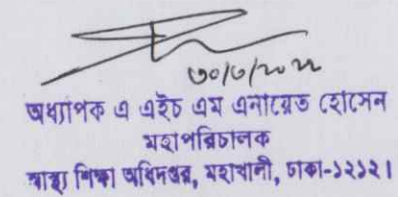 ৩০/৬/২০২২
অধ্যাপক এ এইচ এম এনায়েত হোসেন
মহাপরিচালক
স্বাস্থ্য শিক্ষা অধিদপ্তর, মহাখালী, ঢাকা-১২১২।